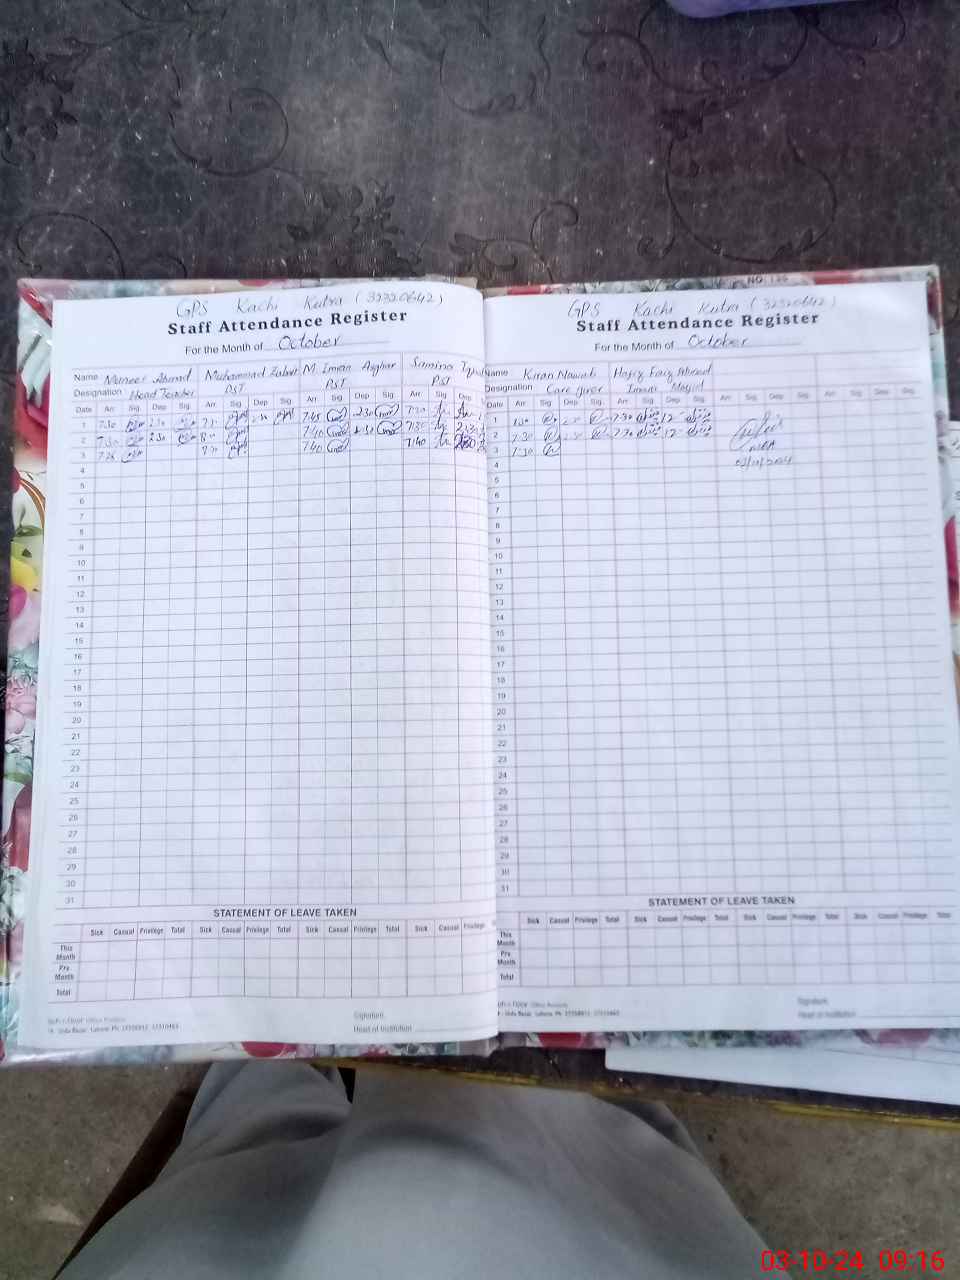 GPS Kachi Kutra (32320642)
Staff Attendance Register
For the Month of October
Name Muneer Ahmad Muhammad Zubair M. Imran Asghar Samina
Designation Head Teacher PST PST PST
Date Arr Sig Dep Sig Arr Sig Dep Sig Arr Sig Dep Sig Arr Sig Dep
1 7.30 2.30 7.45 2.30 7.30
2 7.30 2.30 7.40 2.30 7.30 2.30
3 7.40 7.40
4
5
6
7
8
9
10
11
12
13
14
15
16
17
18
19
20
21
22
23
24
25
26
27
28
29
30
31
STATEMENT OF LEAVE TAKEN
Sick Casual Privilege Total Sick Casual Privilege Total Sick Casual Privilege Total Sick Casual Privilege
This Month
Pre Month
Total
Signature
Head of Institution
Urdu Bazar Lahore Ph:
NO.
GPS Kachi Kutra (32320642)
Staff Attendance Register
For the Month of October
Name Kiran Nawab Hafiz Faiz Ahmad
Designation Care giver Imam Masjid
Date Arr Sig Dep Sig Arr Sig Dep Sig Arr Sig Dep Sig Arr Sig Dep Sig
1 7.30 7.30 12
2 7.30 7.30 12
3 7.30
MEA
4
5
6
7
8
9
10
11
12
13
14
15
16
17
18
19
20
21
22
23
24
25
26
27
28
29
30
31
STATEMENT OF LEAVE TAKEN
Sick Casual Privilege Total Sick Casual Privilege Total Sick Casual Privilege Total Sick Casual Privilege Total
This Month
Pre Month
Total
Signature
Head of Institution
Urdu Bazar Lahore Ph:
03-10-24 09:16